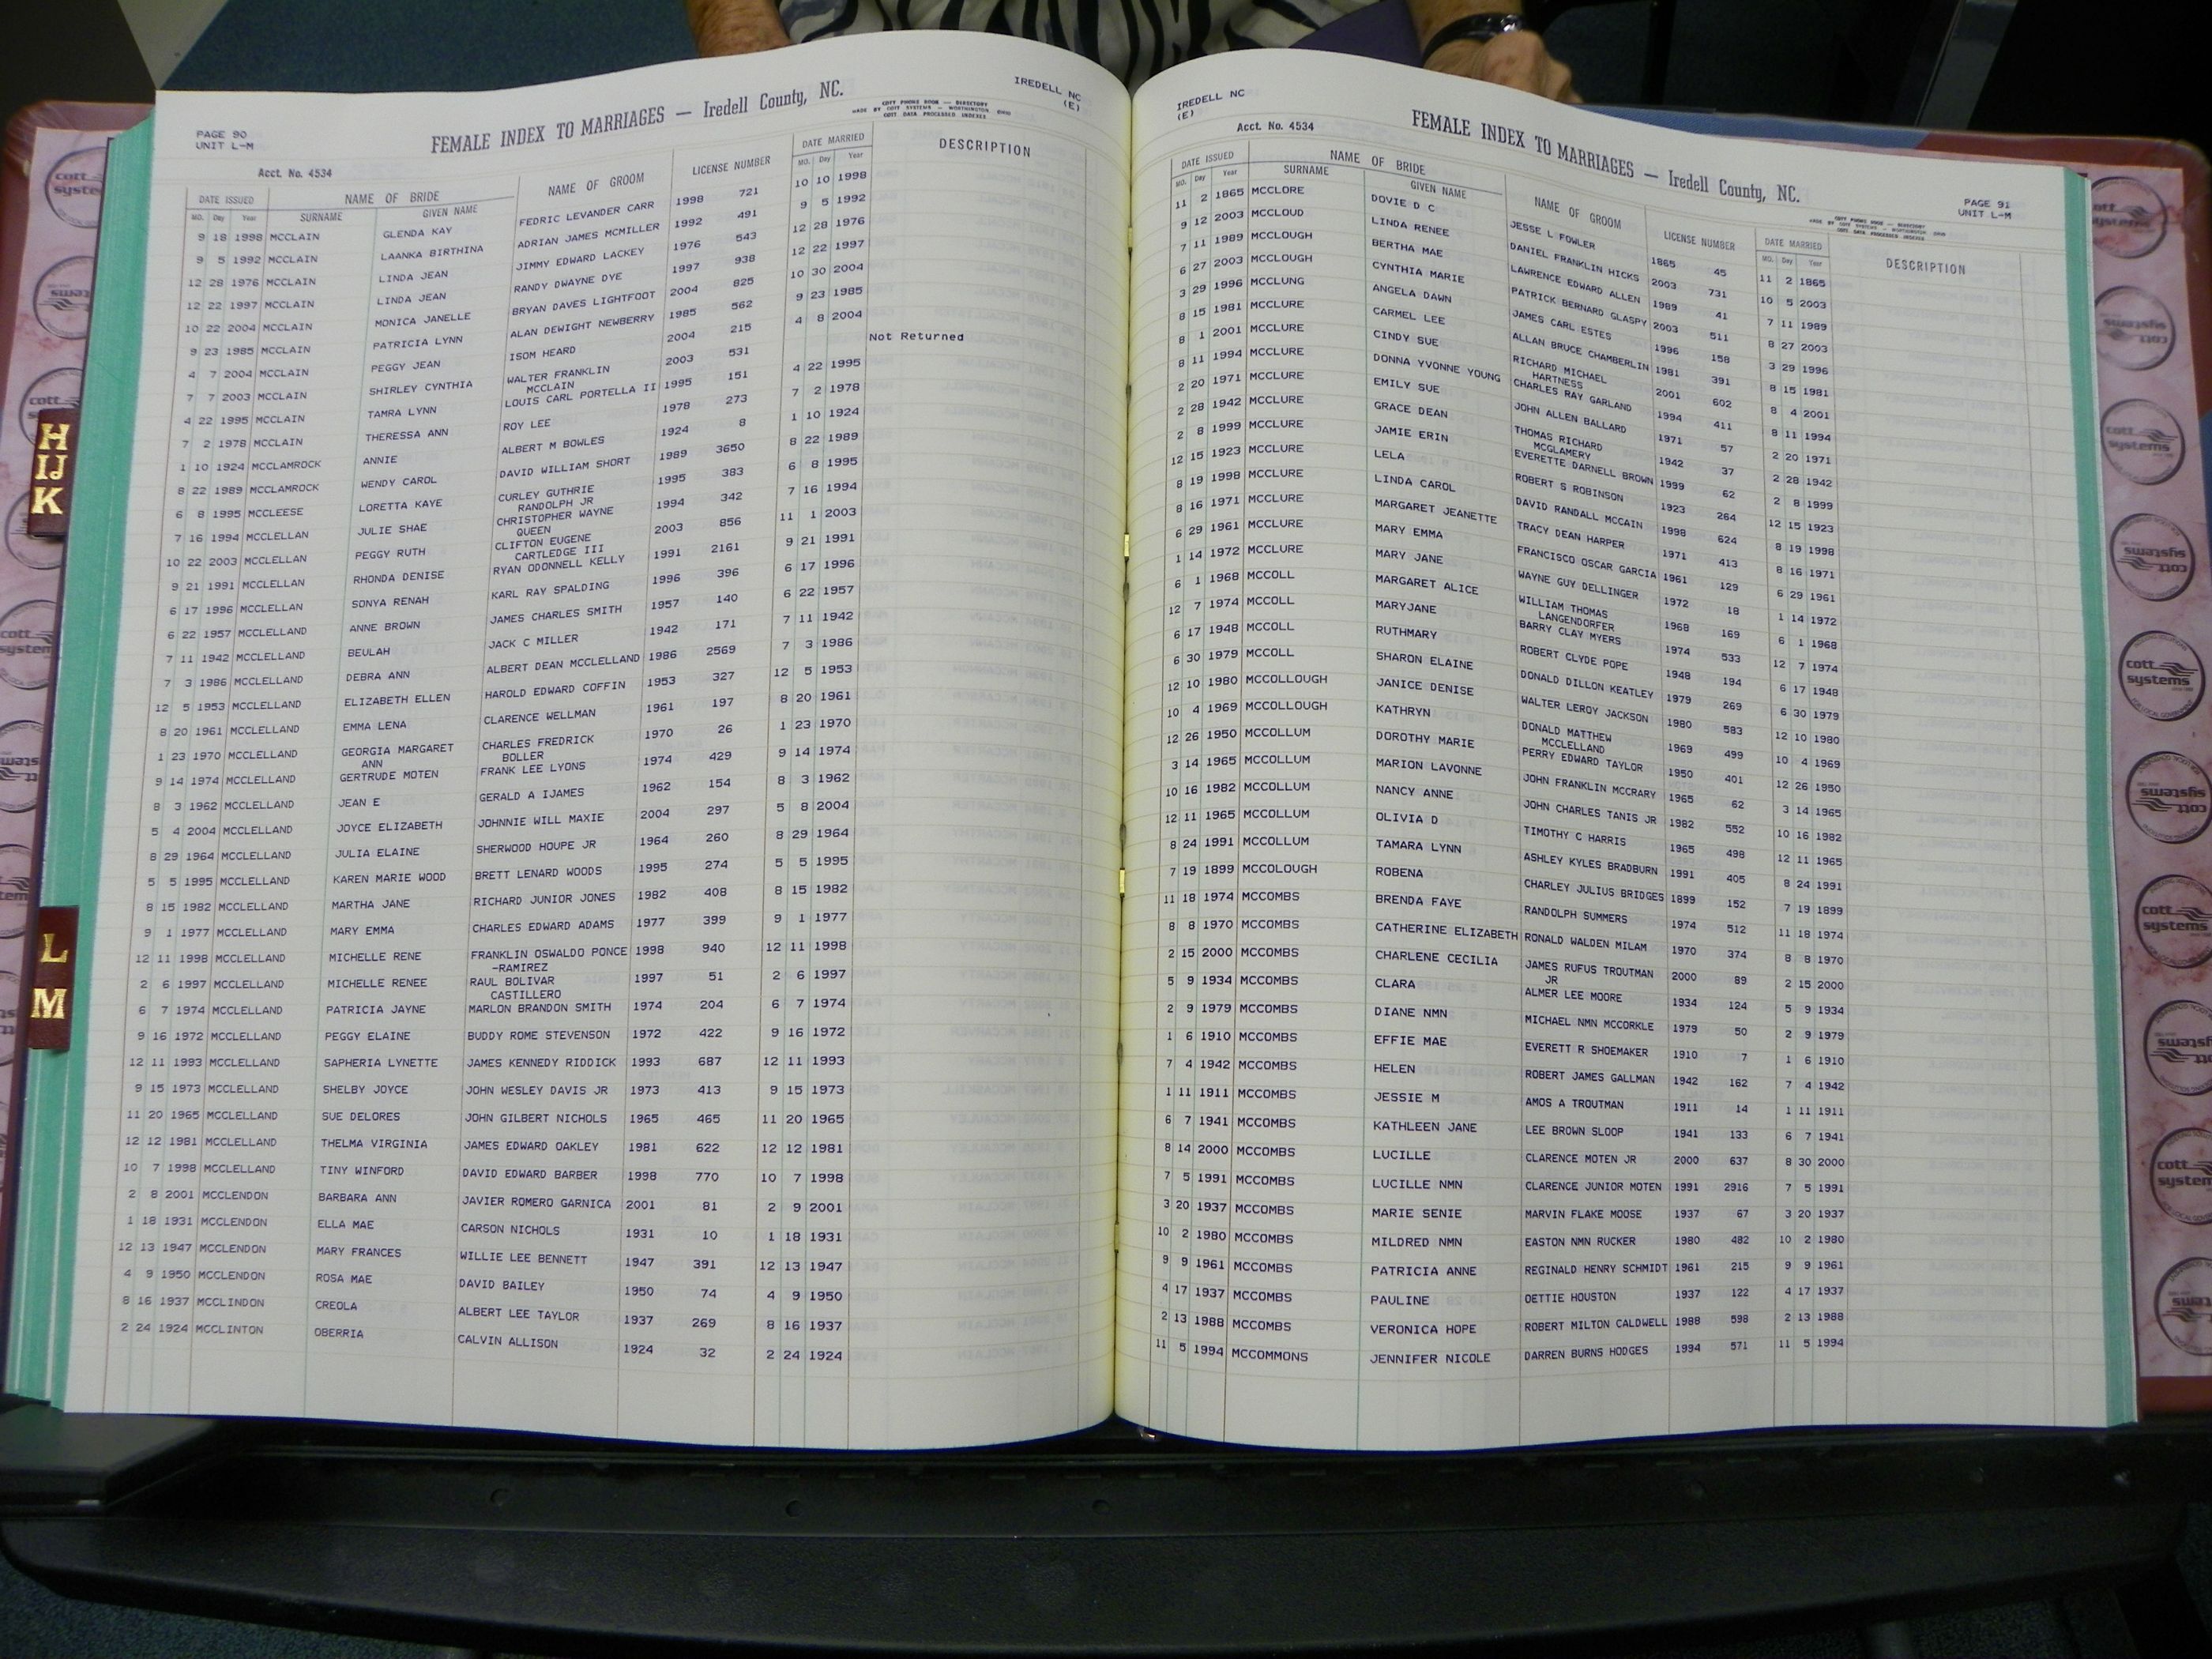 PAGE 90
UNIT L-M
FEMALE INDEX TO MARRIAGES — Iredell County, NC.
IREDELL NC
(E)
COTT PHONE BOOK — DIRECTORY
MADE BY COTT SYSTEMS — WORTHINGTON OHIO
COTT DATA PROCESSED INDEXES
Acct. No. 4534
DATE ISSUED NAME OF BRIDE NAME OF GROOM LICENSE NUMBER DATE MARRIED DESCRIPTION
MO. Day Year SURNAME GIVEN NAME MO. Day Year
9 18 1998 MCCLAIN GLENDA KAY FEDRIC LEVANDER CARR 1998 721 10 10 1998
9 5 1992 MCCLAIN LAANKA BIRTHINA ADRIAN JAMES MCMILLER 1992 491 9 5 1992
12 28 1976 MCCLAIN LINDA JEAN JIMMY EDWARD LACKEY 1976 543 12 28 1976
12 22 1997 MCCLAIN LINDA JEAN RANDY DWAYNE DYE 1997 938 12 22 1997
10 22 2004 MCCLAIN MONICA JANELLE BRYAN DAVES LIGHTFOOT 2004 825 10 30 2004
9 23 1985 MCCLAIN PATRICIA LYNN ALAN DEWIGHT NEWBERRY 1985 562 9 23 1985
4 7 2004 MCCLAIN PEGGY JEAN ISOM HEARD 2004 215 4 8 2004
7 7 2003 MCCLAIN SHIRLEY CYNTHIA WALTER FRANKLIN 2003 531 Not Returned
MCCLAIN
4 22 1995 MCCLAIN TAMRA LYNN LOUIS CARL PORTELLA II 1995 151 4 22 1995
7 2 1978 MCCLAIN THERESSA ANN ROY LEE 1978 273 7 2 1978
1 10 1924 MCCLAMROCK ANNIE ALBERT M BOWLES 1924 8 1 10 1924
8 22 1989 MCCLAMROCK WENDY CAROL DAVID WILLIAM SHORT 1989 3650 8 22 1989
6 8 1995 MCCLEESE LORETTA KAYE CURLEY GUTHRIE 1995 383 6 8 1995
RANDOLPH JR
7 16 1994 MCCLELLAN JULIE SHAE CHRISTOPHER WAYNE 1994 342 7 16 1994
QUEEN
10 22 2003 MCCLELLAN PEGGY RUTH CLIFTON EUGENE 2003 856 11 1 2003
CARTLEDGE III
9 21 1991 MCCLELLAN RHONDA DENISE RYAN ODONNELL KELLY 1991 2161 9 21 1991
6 17 1996 MCCLELLAN SONYA RENAH KARL RAY SPALDING 1996 396 6 17 1996
6 22 1957 MCCLELLAND ANNE BROWN JAMES CHARLES SMITH 1957 140 6 22 1957
7 11 1942 MCCLELLAND BEULAH JACK C MILLER 1942 171 7 11 1942
7 3 1986 MCCLELLAND DEBRA ANN ALBERT DEAN MCCLELLAND 1986 2569 7 3 1986
12 5 1953 MCCLELLAND ELIZABETH ELLEN HAROLD EDWARD COFFIN 1953 327 12 5 1953
8 20 1961 MCCLELLAND EMMA LENA CLARENCE WELLMAN 1961 197 8 20 1961
1 23 1970 MCCLELLAND GEORGIA MARGARET CHARLES FREDRICK 1970 26 1 23 1970
ANN BOLLER
9 14 1974 MCCLELLAND GERTRUDE MOTEN FRANK LEE LYONS 1974 429 9 14 1974
8 3 1962 MCCLELLAND JEAN E GERALD A IJAMES 1962 154 8 3 1962
5 4 2004 MCCLELLAND JOYCE ELIZABETH JOHNNIE WILL MAXIE 2004 297 5 8 2004
8 29 1964 MCCLELLAND JULIA ELAINE SHERWOOD HOUPE JR 1964 260 8 29 1964
5 5 1995 MCCLELLAND KAREN MARIE WOOD BRETT LENARD WOODS 1995 274 5 5 1995
8 15 1982 MCCLELLAND MARTHA JANE RICHARD JUNIOR JONES 1982 408 8 15 1982
9 1 1977 MCCLELLAND MARY EMMA CHARLES EDWARD ADAMS 1977 399 9 1 1977
12 11 1998 MCCLELLAND MICHELLE RENE FRANKLIN OSWALDO PONCE 1998 940 12 11 1998
-RAMIREZ
2 6 1997 MCCLELLAND MICHELLE RENEE RAUL BOLIVAR 1997 51 2 6 1997
CASTILLERO
6 7 1974 MCCLELLAND PATRICIA JAYNE MARLON BRANDON SMITH 1974 204 6 7 1974
9 16 1972 MCCLELLAND PEGGY ELAINE BUDDY ROME STEVENSON 1972 422 9 16 1972
12 11 1993 MCCLELLAND SAPHERIA LYNETTE JAMES KENNEDY RIDDICK 1993 687 12 11 1993
9 15 1973 MCCLELLAND SHELBY JOYCE JOHN WESLEY DAVIS JR 1973 413 9 15 1973
11 20 1965 MCCLELLAND SUE DELORES JOHN GILBERT NICHOLS 1965 465 11 20 1965
12 12 1981 MCCLELLAND THELMA VIRGINIA JAMES EDWARD OAKLEY 1981 622 12 12 1981
10 7 1998 MCCLELLAND TINY WINFORD DAVID EDWARD BARBER 1998 770 10 7 1998
2 8 2001 MCCLENDON BARBARA ANN JAVIER ROMERO GARNICA 2001 81 2 9 2001
1 18 1931 MCCLENDON ELLA MAE CARSON NICHOLS 1931 10 1 18 1931
12 13 1947 MCCLENDON MARY FRANCES WILLIE LEE BENNETT 1947 391 12 13 1947
4 9 1950 MCCLENDON ROSA MAE DAVID BAILEY 1950 74 4 9 1950
8 16 1937 MCCLINDON CREOLA ALBERT LEE TAYLOR 1937 269 8 16 1937
2 24 1924 MCCLINTON OBERRIA CALVIN ALLISON 1924 32 2 24 1924
IREDELL NC
(E)
FEMALE INDEX TO MARRIAGES — Iredell County, NC.
PAGE 91
UNIT L-M
COTT PHONE BOOK — DIRECTORY
MADE BY COTT SYSTEMS — WORTHINGTON OHIO
COTT DATA PROCESSED INDEXES
Acct. No. 4534
DATE ISSUED NAME OF BRIDE NAME OF GROOM LICENSE NUMBER DATE MARRIED DESCRIPTION
MO. Day Year SURNAME GIVEN NAME MO. Day Year
11 2 1865 MCCLORE DOVIE D C JESSE L FOWLER 1865 45 11 2 1865
9 12 2003 MCCLOUD LINDA RENEE DANIEL FRANKLIN HICKS 2003 731 10 5 2003
7 11 1989 MCCLOUGH BERTHA MAE LAWRENCE EDWARD ALLEN 1989 41 7 11 1989
6 27 2003 MCCLOUGH CYNTHIA MARIE PATRICK BERNARD GLASPY 2003 511 8 27 2003
3 29 1996 MCCLUNG ANGELA DAWN JAMES CARL ESTES 1996 158 3 29 1996
8 15 1981 MCCLURE CARMEL LEE ALLAN BRUCE CHAMBERLIN 1981 391 8 15 1981
8 1 2001 MCCLURE CINDY SUE RICHARD MICHAEL 2001 602 8 4 2001
HARTNESS
8 11 1994 MCCLURE DONNA YVONNE YOUNG CHARLES RAY GARLAND 1994 411 8 11 1994
2 20 1971 MCCLURE EMILY SUE JOHN ALLEN BALLARD 1971 57 2 20 1971
2 28 1942 MCCLURE GRACE DEAN THOMAS RICHARD 1942 37 2 28 1942
MCGLAMERY
2 8 1999 MCCLURE JAMIE ERIN EVERETTE DARNELL BROWN 1999 62 2 8 1999
12 15 1923 MCCLURE LELA ROBERT S ROBINSON 1923 264 12 15 1923
8 19 1998 MCCLURE LINDA CAROL DAVID RANDALL MCCAIN 1998 624 8 19 1998
8 16 1971 MCCLURE MARGARET JEANETTE TRACY DEAN HARPER 1971 413 8 16 1971
6 29 1961 MCCLURE MARY EMMA FRANCISCO OSCAR GARCIA 1961 129 6 29 1961
1 14 1972 MCCLURE MARY JANE WAYNE GUY DELLINGER 1972 18 1 14 1972
6 1 1968 MCCOLL MARGARET ALICE WILLIAM THOMAS 1968 169 6 1 1968
LANGENDORFER
12 7 1974 MCCOLL MARYJANE BARRY CLAY MYERS 1974 533 12 7 1974
6 17 1948 MCCOLL RUTHMARY ROBERT CLYDE POPE 1948 194 6 17 1948
6 30 1979 MCCOLL SHARON ELAINE DONALD DILLON KEATLEY 1979 269 6 30 1979
12 10 1980 MCCOLLOUGH JANICE DENISE WALTER LEROY JACKSON 1980 583 12 10 1980
10 4 1969 MCCOLLOUGH KATHRYN DONALD MATTHEW 1969 499 10 4 1969
MCCLELLAND
12 26 1950 MCCOLLUM DOROTHY MARIE PERRY EDWARD TAYLOR 1950 401 12 26 1950
3 14 1965 MCCOLLUM MARION LAVONNE JOHN FRANKLIN MCCRARY 1965 62 3 14 1965
10 16 1982 MCCOLLUM NANCY ANNE JOHN CHARLES TANIS JR 1982 552 10 16 1982
12 11 1965 MCCOLLUM OLIVIA D TIMOTHY C HARRIS 1965 498 12 11 1965
8 24 1991 MCCOLLUM TAMARA LYNN ASHLEY KYLES BRADBURN 1991 405 8 24 1991
7 19 1899 MCCOLOUGH ROBENA CHARLEY JULIUS BRIDGES 1899 152 7 19 1899
11 18 1974 MCCOMBS BRENDA FAYE RANDOLPH SUMMERS 1974 512 11 18 1974
8 8 1970 MCCOMBS CATHERINE ELIZABETH RONALD WALDEN MILAM 1970 374 8 8 1970
2 15 2000 MCCOMBS CHARLENE CECILIA JAMES RUFUS TROUTMAN 2000 89 2 15 2000
JR
5 9 1934 MCCOMBS CLARA ALMER LEE MOORE 1934 124 5 9 1934
2 9 1979 MCCOMBS DIANE NMN MICHAEL NMN MCCORKLE 1979 50 2 9 1979
1 6 1910 MCCOMBS EFFIE MAE EVERETT R SHOEMAKER 1910 7 1 6 1910
7 4 1942 MCCOMBS HELEN ROBERT JAMES GALLMAN 1942 162 7 4 1942
1 11 1911 MCCOMBS JESSIE M AMOS A TROUTMAN 1911 14 1 11 1911
6 7 1941 MCCOMBS KATHLEEN JANE LEE BROWN SLOOP 1941 133 6 7 1941
8 14 2000 MCCOMBS LUCILLE CLARENCE MOTEN JR 2000 637 8 30 2000
7 5 1991 MCCOMBS LUCILLE NMN CLARENCE JUNIOR MOTEN 1991 2916 7 5 1991
3 20 1937 MCCOMBS MARIE SENIE MARVIN FLAKE MOOSE 1937 67 3 20 1937
10 2 1980 MCCOMBS MILDRED NMN EASTON NMN RUCKER 1980 482 10 2 1980
9 9 1961 MCCOMBS PATRICIA ANNE REGINALD HENRY SCHMIDT 1961 215 9 9 1961
4 17 1937 MCCOMBS PAULINE OETTIE HOUSTON 1937 122 4 17 1937
2 13 1988 MCCOMBS VERONICA HOPE ROBERT MILTON CALDWELL 1988 598 2 13 1988
11 5 1994 MCCOMMONS JENNIFER NICOLE DARREN BURNS HODGES 1994 571 11 5 1994
H
IJ
K
L
M
cott
systems